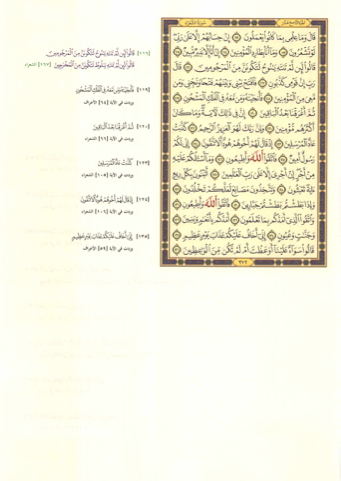 قَالَ وَمَا عِلْمِي بِمَا كَانُوا يَعْمَلُونَ ﴿١١٢﴾ إِنْ حِسَابُهُمْ إِلَّا عَلَىٰ رَبِّي
لَوْ تَشْعُرُونَ ﴿١١٣﴾ وَمَا أَنَا بِطَارِدِ الْمُؤْمِنِينَ ﴿١١٤﴾ إِنْ أَنَا إِلَّا نَذِيرٌ مُبِينٌ ﴿١١٥﴾
قَالُوا لَئِنْ لَمْ تَنْتَهِ يَا نُوحُ لَتَكُونَنَّ مِنَ الْمَرْجُومِينَ ﴿١١٦﴾ قَالَ
رَبِّ إِنَّ قَوْمِي كَذَّبُونِ ﴿١١٧﴾ فَافْتَحْ بَيْنِي وَبَيْنَهُمْ فَتْحًا وَنَجِّنِي وَمَنْ
مَعِيَ مِنَ الْمُؤْمِنِينَ ﴿١١٨﴾ فَأَنْجَيْنَاهُ وَمَنْ مَعَهُ فِي الْفُلْكِ الْمَشْحُونِ ﴿١١٩﴾
ثُمَّ أَغْرَقْنَا بَعْدُ الْبَاقِينَ ﴿١٢٠﴾ إِنَّ فِي ذَٰلِكَ لَآيَةً وَمَا كَانَ
أَكْثَرُهُمْ مُؤْمِنِينَ ﴿١٢١﴾ وَإِنَّ رَبَّكَ لَهُوَ الْعَزِيزُ الرَّحِيمُ ﴿١٢٢﴾ كَذَّبَتْ
عَادٌ الْمُرْسَلِينَ ﴿١٢٣﴾ إِذْ قَالَ لَهُمْ أَخُوهُمْ هُودٌ أَلَا تَتَّقُونَ ﴿١٢٤﴾ إِنِّي لَكُمْ
رَسُولٌ أَمِينٌ ﴿١٢٥﴾ فَاتَّقُوا اللَّهَ وَأَطِيعُونِ ﴿١٢٦﴾ وَمَا أَسْأَلُكُمْ عَلَيْهِ
مِنْ أَجْرٍ إِنْ أَجْرِيَ إِلَّا عَلَىٰ رَبِّ الْعَالَمِينَ ﴿١٢٧﴾ أَتَبْنُونَ بِكُلِّ رِيعٍ
آيَةً تَعْبَثُونَ ﴿١٢٨﴾ وَتَتَّخِذُونَ مَصَانِعَ لَعَلَّكُمْ تَخْلُدُونَ ﴿١٢٩﴾
وَإِذَا بَطَشْتُمْ بَطَشْتُمْ جَبَّارِينَ ﴿١٣٠﴾ فَاتَّقُوا اللَّهَ وَأَطِيعُونِ ﴿١٣١﴾
وَاتَّقُوا الَّذِي أَمَدَّكُمْ بِمَا تَعْلَمُونَ ﴿١٣٢﴾ أَمَدَّكُمْ بِأَنْعَامٍ وَبَنِينَ ﴿١٣٣﴾
وَجَنَّاتٍ وَعُيُونٍ ﴿١٣٤﴾ إِنِّي أَخَافُ عَلَيْكُمْ عَذَابَ يَوْمٍ عَظِيمٍ ﴿١٣٥﴾
قَالُوا سَوَاءٌ عَلَيْنَا أَوَعَظْتَ أَمْ لَمْ تَكُنْ مِنَ الْوَاعِظِينَ ﴿١٣٦﴾
[١١٦] قَالُوا لَئِنْ لَمْ تَنْتَهِ يَا نُوحُ لَتَكُونَنَّ مِنَ الْمَرْجُومِينَ
قَالُوا لَئِنْ لَمْ تَنْتَهِ يَا لُوطُ لَتَكُونَنَّ مِنَ الْمُخْرَجِينَ [١٦٧] الشعراء
[١١٩] فَأَنْجَيْنَاهُ وَمَنْ مَعَهُ فِي الْفُلْكِ الْمَشْحُونِ
وردت في الآية [٦٤] الأعراف
[١٢٠] ثُمَّ أَغْرَقْنَا بَعْدُ الْبَاقِينَ
وردت في الآية [٦٦] الشعراء
[١٢٣] كَذَّبَتْ عَادٌ الْمُرْسَلِينَ
وردت في الآية [١٠٥] الشعراء
[١٢٤] إِذْ قَالَ لَهُمْ أَخُوهُمْ هُودٌ أَلَا تَتَّقُونَ
وردت في الآية [١٠٦] الشعراء
[١٣٥] إِنِّي أَخَافُ عَلَيْكُمْ عَذَابَ يَوْمٍ عَظِيمٍ
وردت في الآية [٥٩] الأعراف